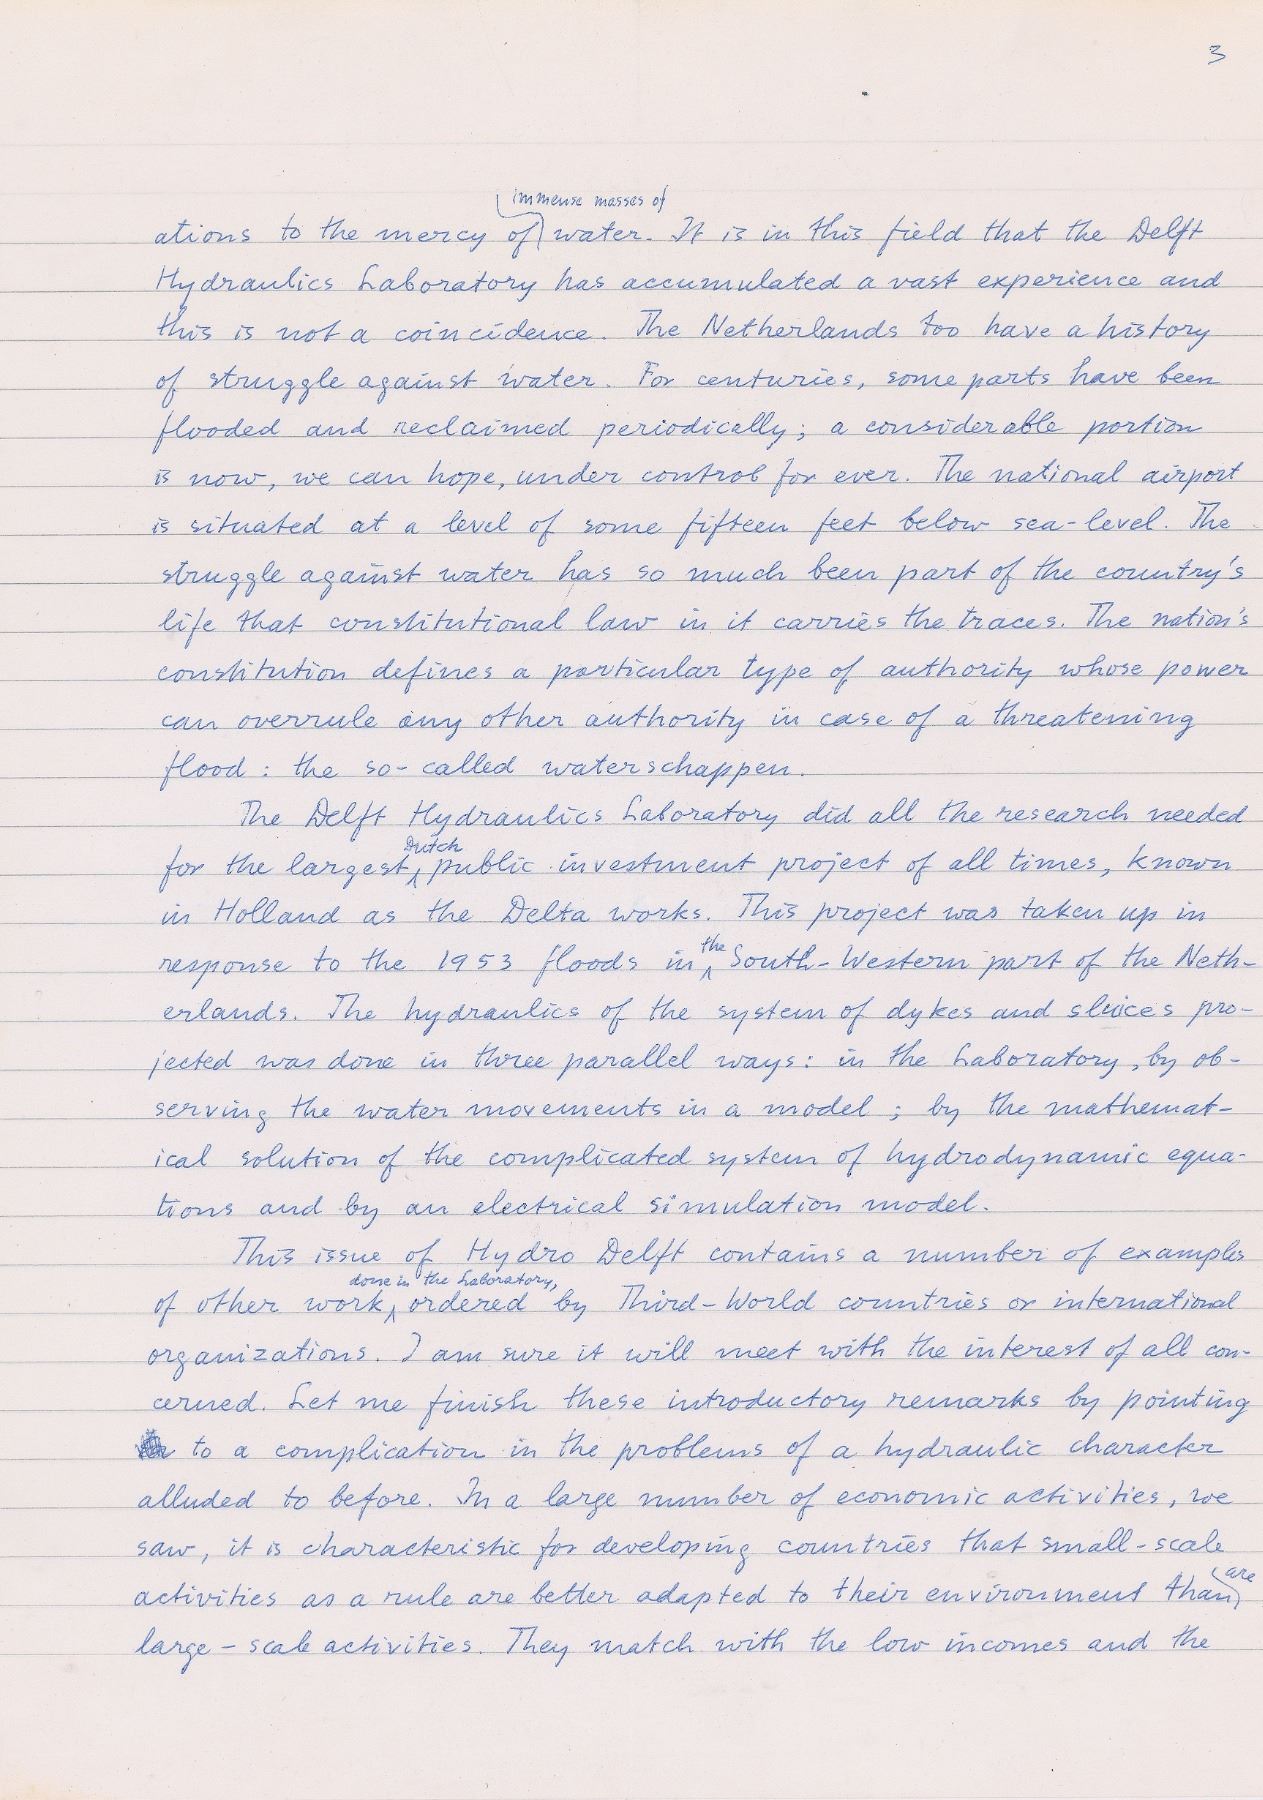 3
immense masses of
ations to the mercy of water. It is in this field that the Delft
Hydraulics Laboratory has accumulated a vast experience and
this is not a coincidence. The Netherlands too have a history
of struggle against water. For centuries, some parts have been
flooded and reclaimed periodically; a considerable portion
is now, we can hope, under control for ever. The national airport
is situated at a level of some fifteen feet below sea-level. The
struggle against water has so much been part of the country's
life that constitutional law in it carries the traces. The nation's
constitution defines a particular type of authority whose power
can overrule any other authority in case of a threatening
flood: the so-called waterschappen.
The Delft Hydraulics Laboratory did all the research needed
Dutch
for the largest public investment project of all times, known
in Holland as the Delta works. This project was taken up in
the
response to the 1953 floods in South-Western part of the Neth-
erlands. The hydraulics of the system of dykes and sluices pro-
jected was done in three parallel ways: in the Laboratory, by ob-
serving the water movements in a model; by the mathemat-
ical solution of the complicated system of hydrodynamic equa-
tions and by an electrical simulation model.
This issue of Hydro Delft contains a number of examples
done in the Laboratory,
of other work, ordered by Third-World countries or international
organizations. I am sure it will meet with the interest of all con-
cerned. Let me finish these introductory remarks by pointing
to a complication in the problems of a hydraulic character
alluded to before. In a large number of economic activities, we
saw, it is characteristic for developing countries that small-scale
are
activities as a rule are better adapted to their environment than
large-scale activities. They match with the low incomes and the